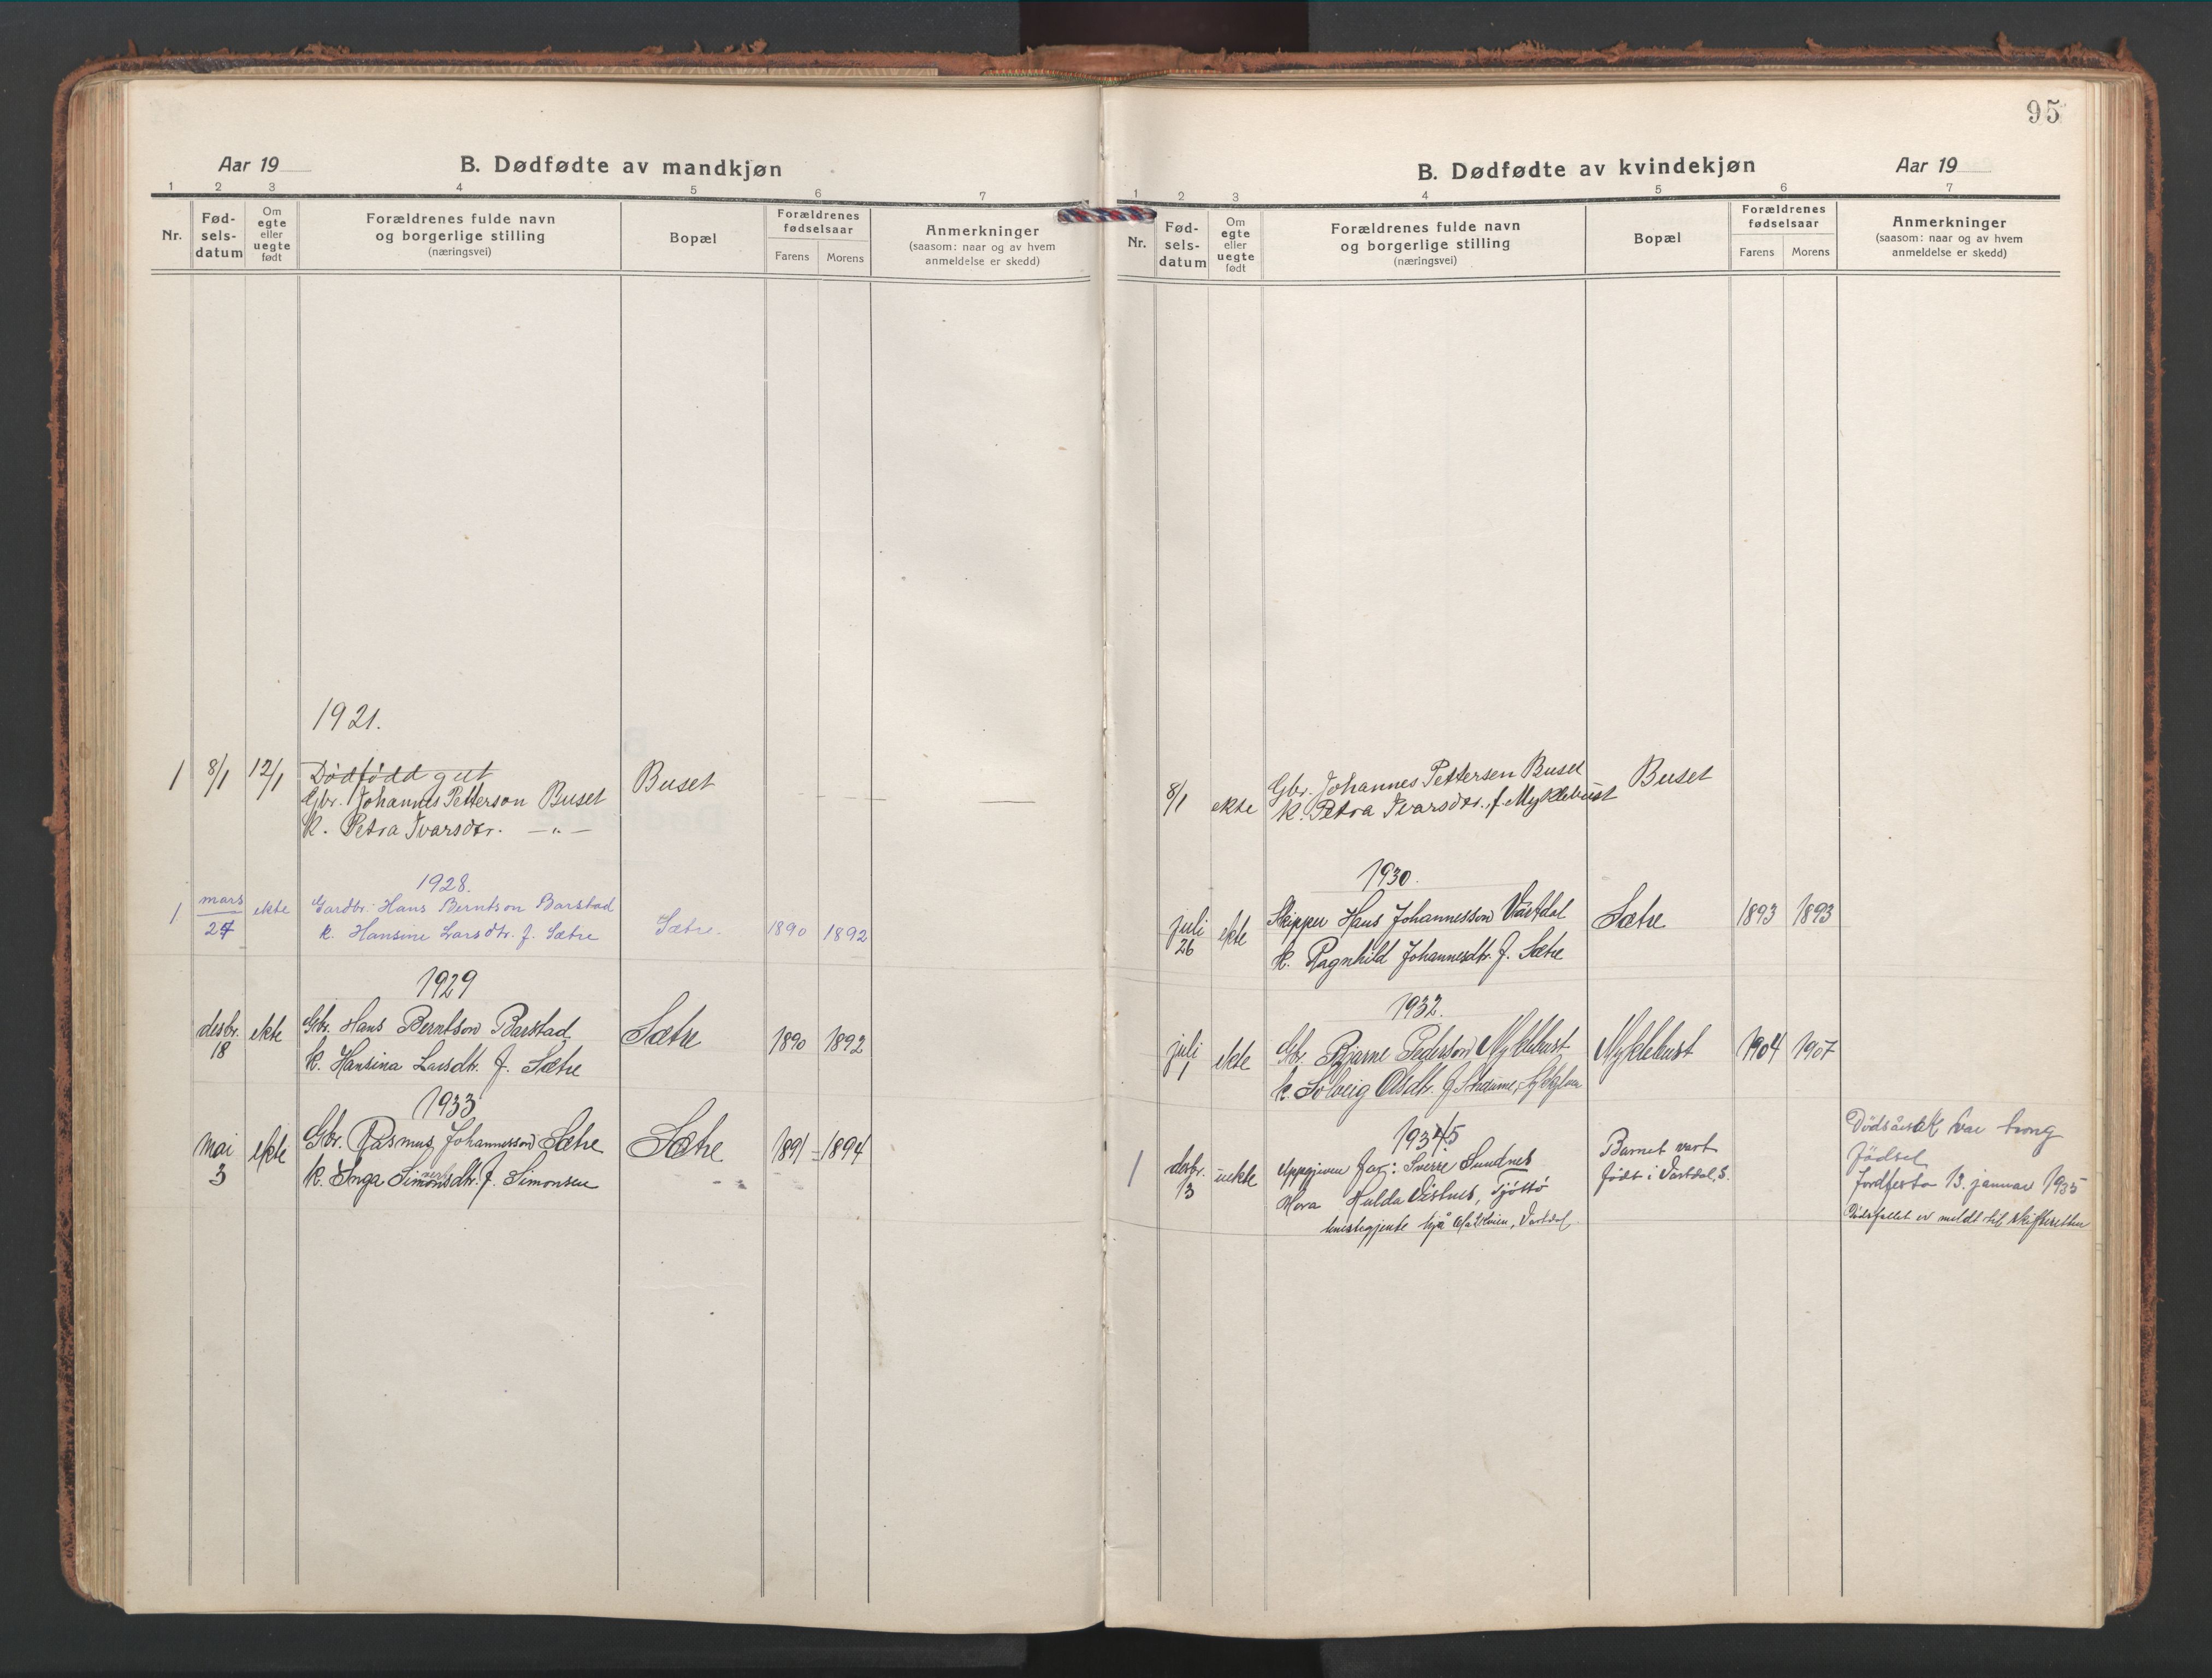 95
Aar 19
B. Dødfødte av mandkjøn
1 2 3 4 5 6 7
Nr.
Fød-
sels-
datum
Om
egte
eller
uegte
født
Forældrenes fulde navn
og borgerlige stilling
(næringsvei)
Bopæl
Forældrenes
fødselsaar
Farens Morens
Anmerkninger
(saasom: naar og av hvem
anmeldelse er skedd)
1921.
1 8/1 12/1 Dødfødd gut
Gbr. Johannes Petterson Buset Buset
k. Petra Ivarsdtr. — „ —
1928.
1 mars 24 ekte Gardbr. Hans Berntson Barstad
k. Hansine Larsdtr. f. Sætre Sætre. 1890 1892
1929
desbr. 18 ekte Gbr. Hans Berntson Barstad Sætre 1890 1892
k. Hansina Larsdtr. f. Sætre
1933
mai 3 ekte Gbr. Rasmus Johannesson Sætre Sætre 1891 1894
k. Inga Simonsdtr. f. Simonsen
B. Dødfødte av kvindekjøn
Aar 19
1 2 3 4 5 6 7
Nr.
Fød-
sels-
datum
Om
egte
eller
uegte
født
Forældrenes fulde navn
og borgerlige stilling
(næringsvei)
Bopæl
Forældrenes
fødselsaar
Farens Morens
Anmerkninger
(saasom: naar og av hvem
anmeldelse er skedd)
8/1 ekte Gbr. Johannes Pettersen Buset Buset
k. Petra Ivarsdtr. f. Myklebust
1930.
juli 26 ekte Skipper Hans Johannesson Vartdal Sætre 1893 1893
k. Ragnhild Johannesdtr. f. Sætre
1932.
juli 1 ekte Gbr. Bjarne Pederson Myklebust Myklebust 1904 1907
k. Solveig Olsdtr. f.
19345
1 desbr. 13 uekte Uppgjeven far: Sverre Sundnes
Mora Hulda Vistnes, Tjöttö
tenestegjente hjå Vartdal.
Barnet vart
født i Vartdal, S.
Dödsårsak var trong
födsel
Jordfesta 13. januar 1935
Dödsfallet er meldt til skifteretten